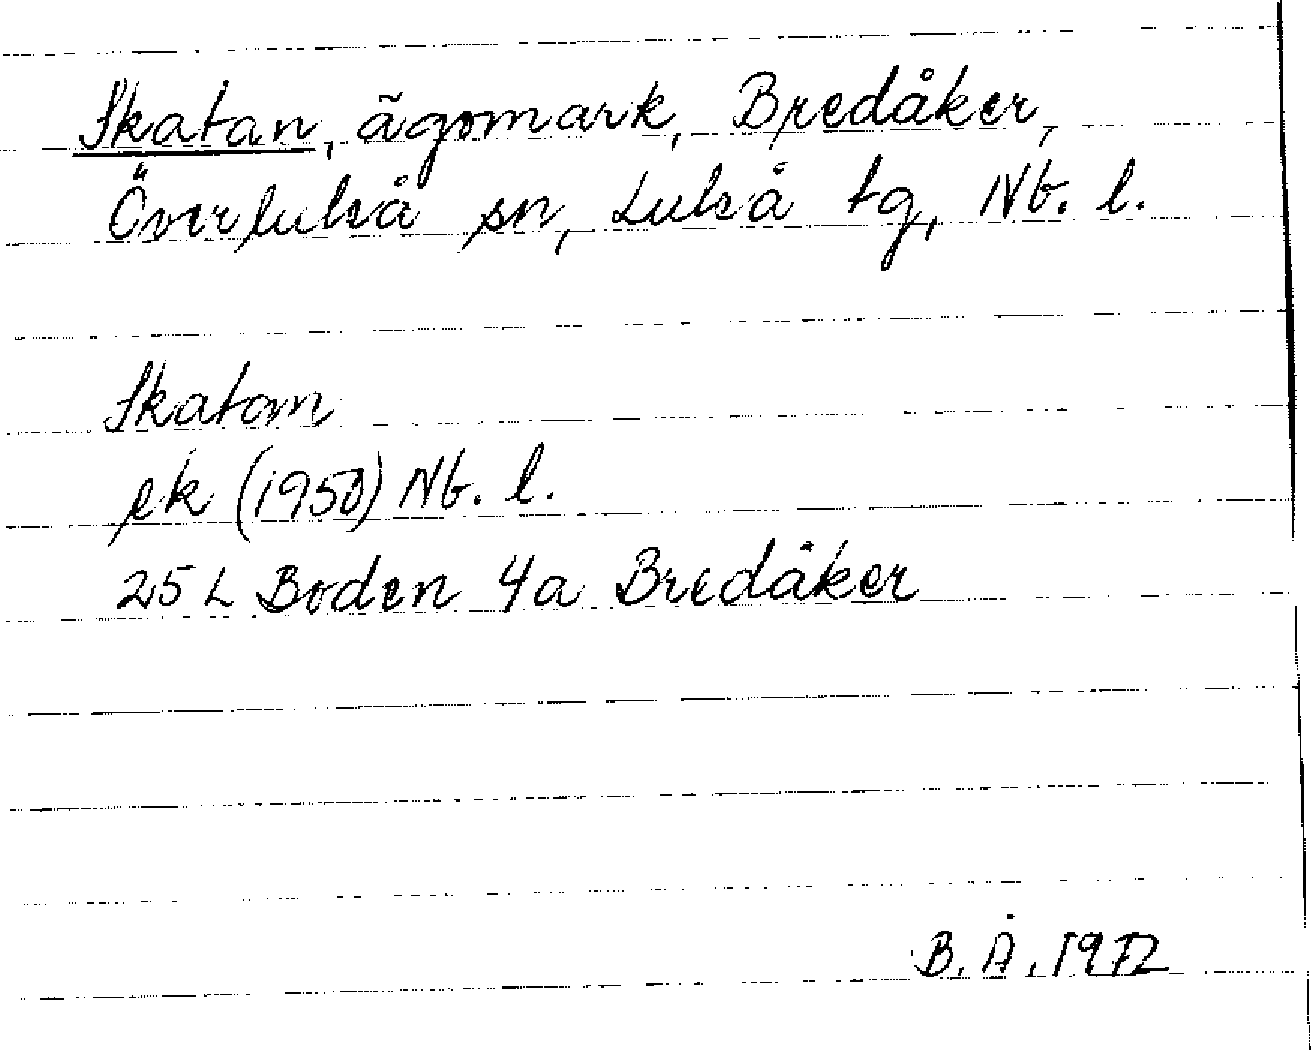 Skatan, ägomark, Bredåker,
Överluleå sn, Luleå tg, Nb. l.
Skatan
ek (1950) Nb. l.
25 L Boden 4a Bredåker
B. Å. 1972